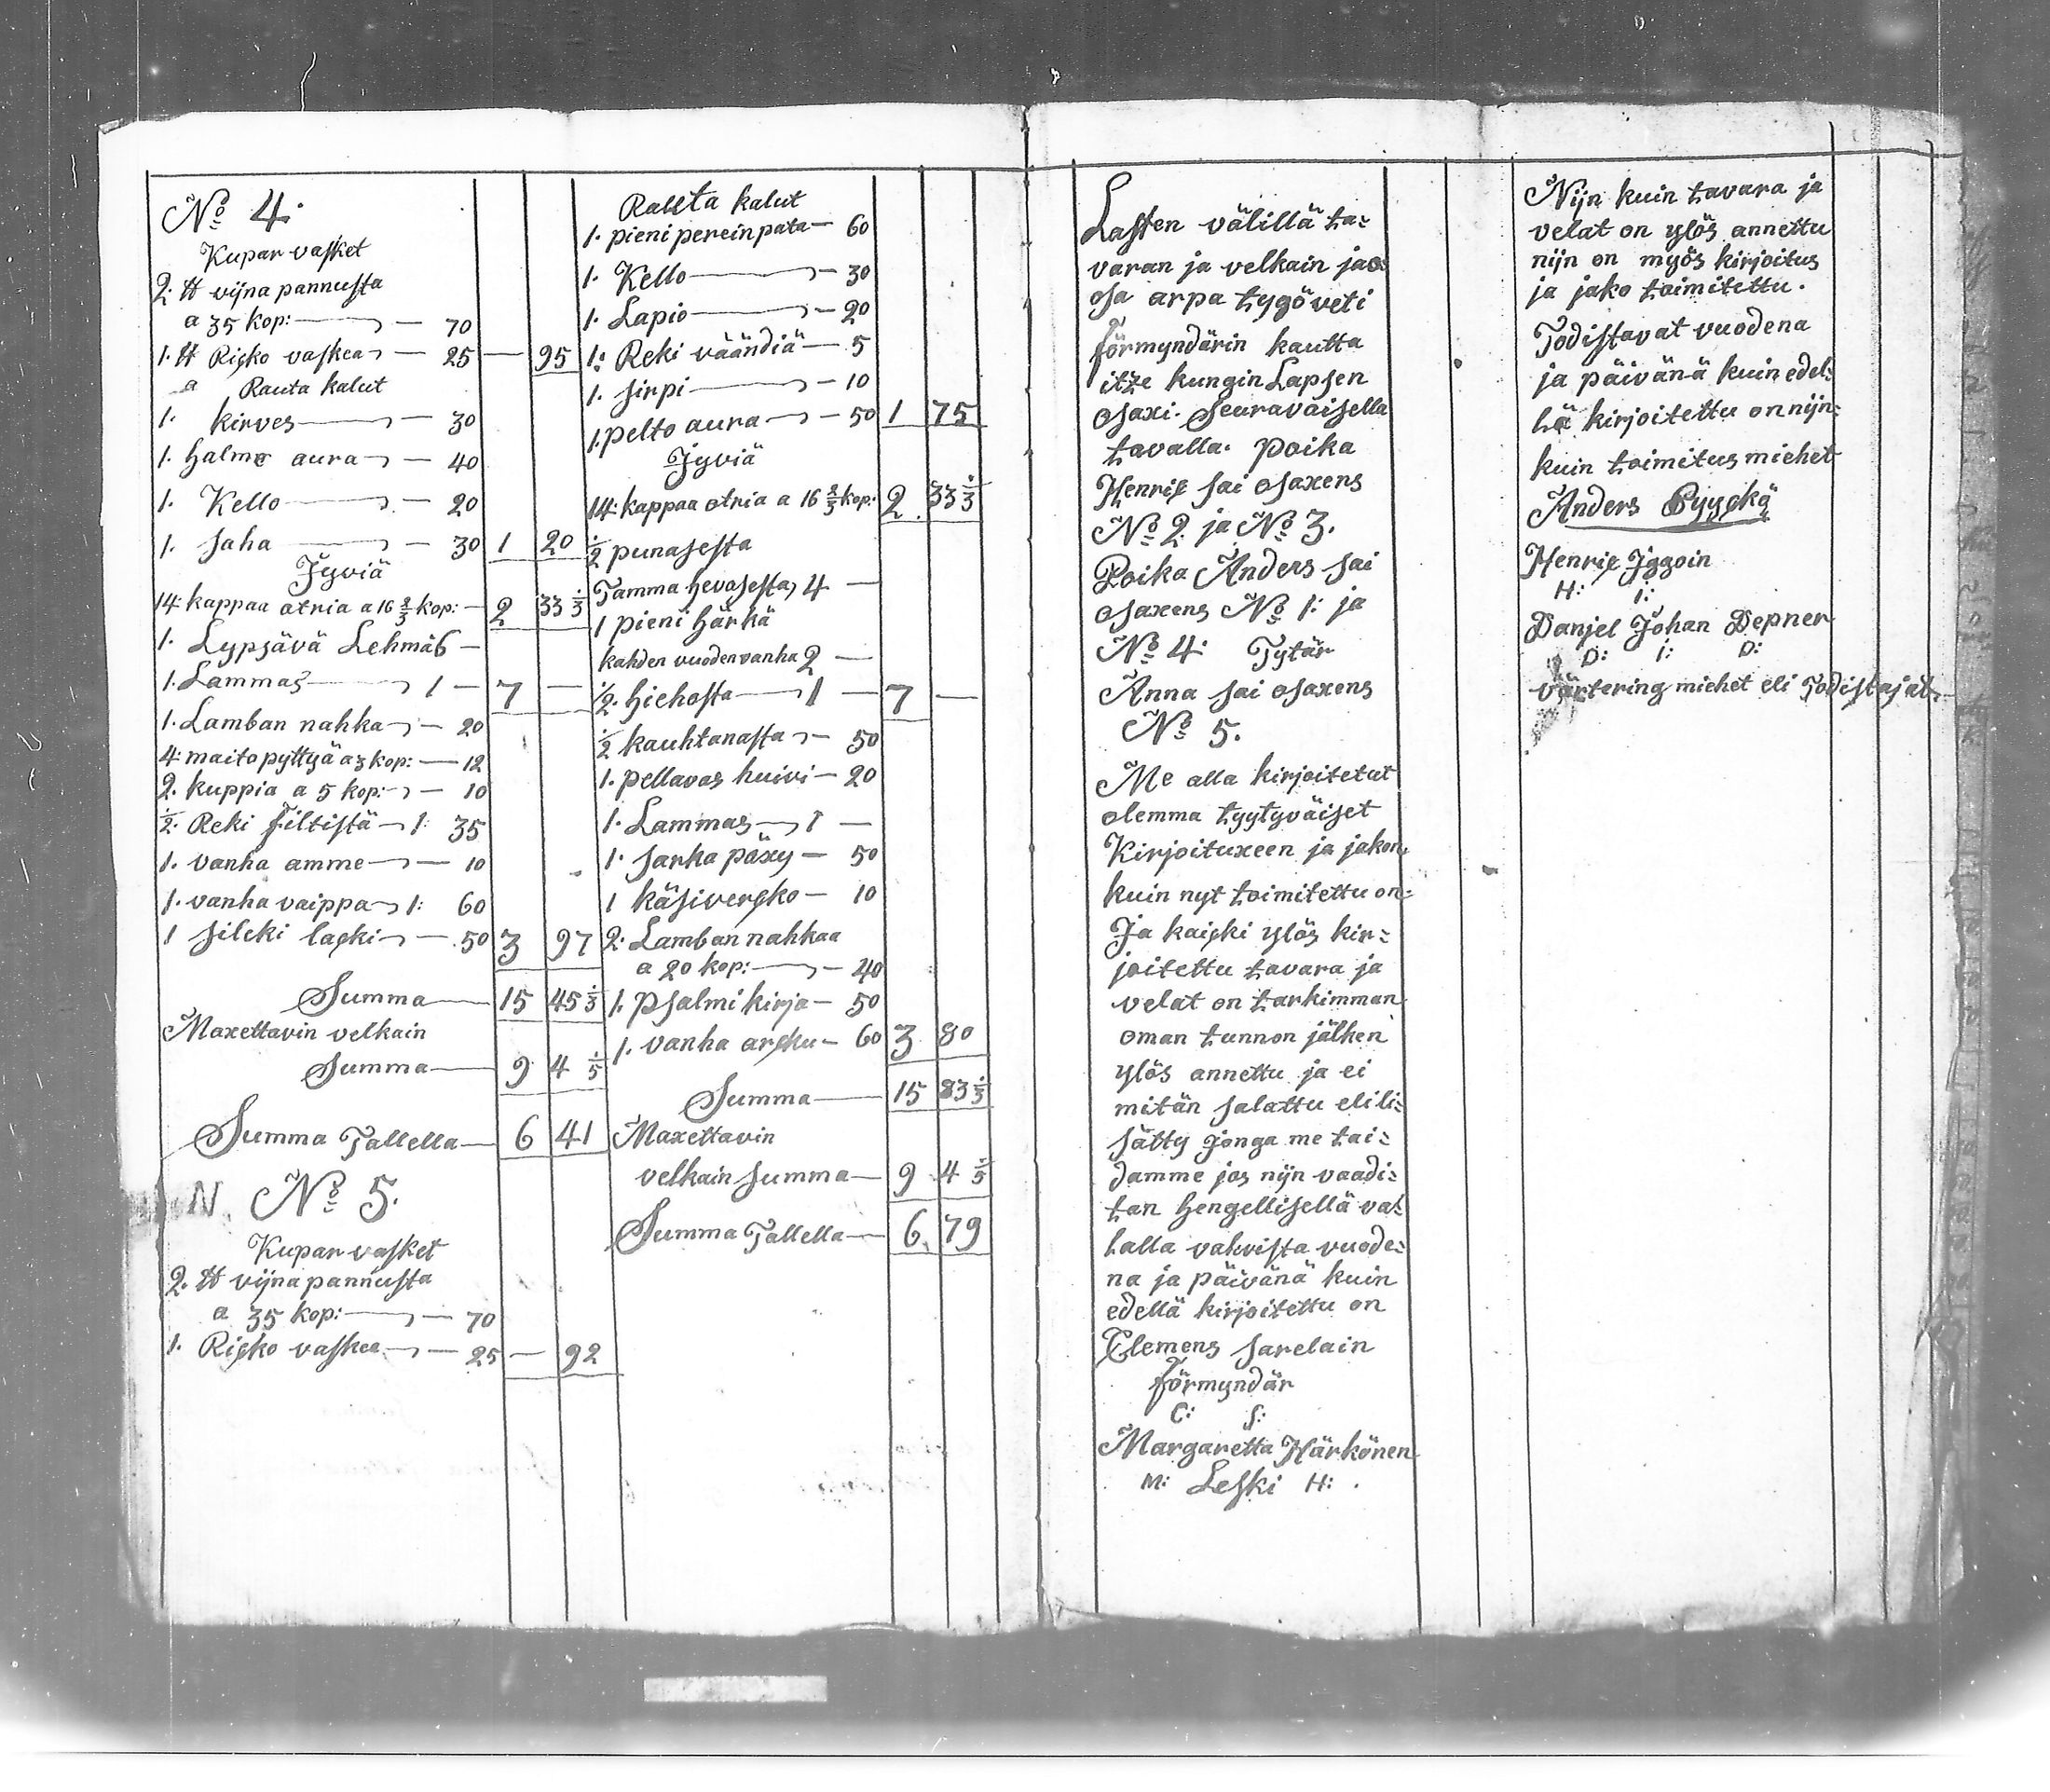 No 4.
Kupar vasket
2. ℔ vijna pannusta
a 35 kop: — 70
1. ℔ Risko vaskea — 25 — 95
a Rauta kalut
1. kirves — 30
1. halme aura — 40
1. Kello — 20
1. saha — 30 1 20
Jyviä
14: kappaa otria a 16 2/3 kop: — 2 33 1/3
1. Lypsävä Lehmä 6 —
1. Lammas — 1 — 7 —
1. Lamban nahka — 20
4 maito pyttyä a 3 kop: — 12
2. kuppia a 5 kop: — 10
1/2: Reki filtistä — 1: 35
1. vanha amme — 10
1. vanha vaippa — 1: 60
1 sileki laski — 50 3 97
Summa — 15 45 1/3
Maxettavin velkain
Summa — 9 4 1/5
Summa Tallella — 6 41
N. No 5.
Kupar vasket
2. ℔ vijna pannusta
a 35 kop: — 70
1. Risko vaskea — 25 — 92
Rauta kalut
1. pieni perein pata — 60
1. Kello — 30
1. Lapio — 20
1: Reki väändiä — 5
1. sirpi — 10
1. pelto aura — 50 1 75
Jyviä
14: kappaa otria a 16 2/3 kop: 2. 33 1/3
1/2 punasesta
Tamma hevosesta, 4 —
1 pieni härkä
kahden vuoden vanha 2 —
1/2. hiehosta — 1 — 7 —
1/2 kauhtanasta — 50
1. pellavas huivi — 20
1. Lammas — 1 —
1. sarka päxy — 50
1 käsiversko — 10
2. Lamban nahkaa
a 20 kop: — 40
1. psalmi kirja — 50
1. vanha arsku — 60 3 80
Summa — 15 83 1/3
Maxettavin
velkain summa — 9 4 1/5
Summa Tallella — 6. 79
Lasten välillä ta=
varan ja velkain jaos
osa arpa tygö veti
förmyndärin kautta
itze kungin Lapsen
osaxi. Seuravaisella
tavalla. poika
Henrik sai osaxens
No 2. ja No 3.
Poika Anders sai
osaxens No 1: ja
No 4: Tytär
Anna sai osaxens
No 5.
Me alla kirjoitetut
olemma tyytyväiset
Kirjoituxeen ja jakon
kuin nyt toimitettu on:
Ja kaicki ylös kir=
joitettu tavara ja
velat on tarkimman
oman tunnon jälken
ylös annettu ja ei
mitän salattu eli li=
sätty jonga me tai=
damme jos nijn vaadi=
tan hengellisellä va=
lalla vahvista vuode=
na ja päivänä kuin
edellä kirjoitettu on
Clemens Sarelain
förmyndär
C: S:
Margaretta Härkönen
M: Leski H: .
Nijn kuin tavara ja
velat on ylös annettu
nijn on myös kirjoitus
ja jako toimitettu.
Todistavat vuodena
ja päivänä kuin edel=
lä kirjoitettu on nijn=
kuin toimitus miehet
Anders Pyyckö
Henrik Iggoin
H: I:
Danjel Johan Depner
D: I: D:
värtering miehet eli Todistajat